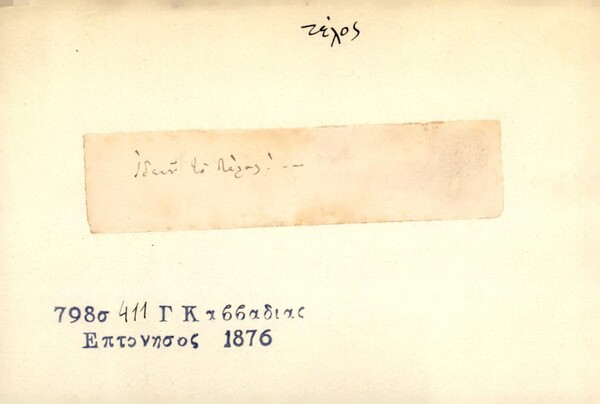 τέλος
Ἰδεῦ τὸ τέλος! —
798σ 411 Γ Καββαδιας
Επτονησος 1876